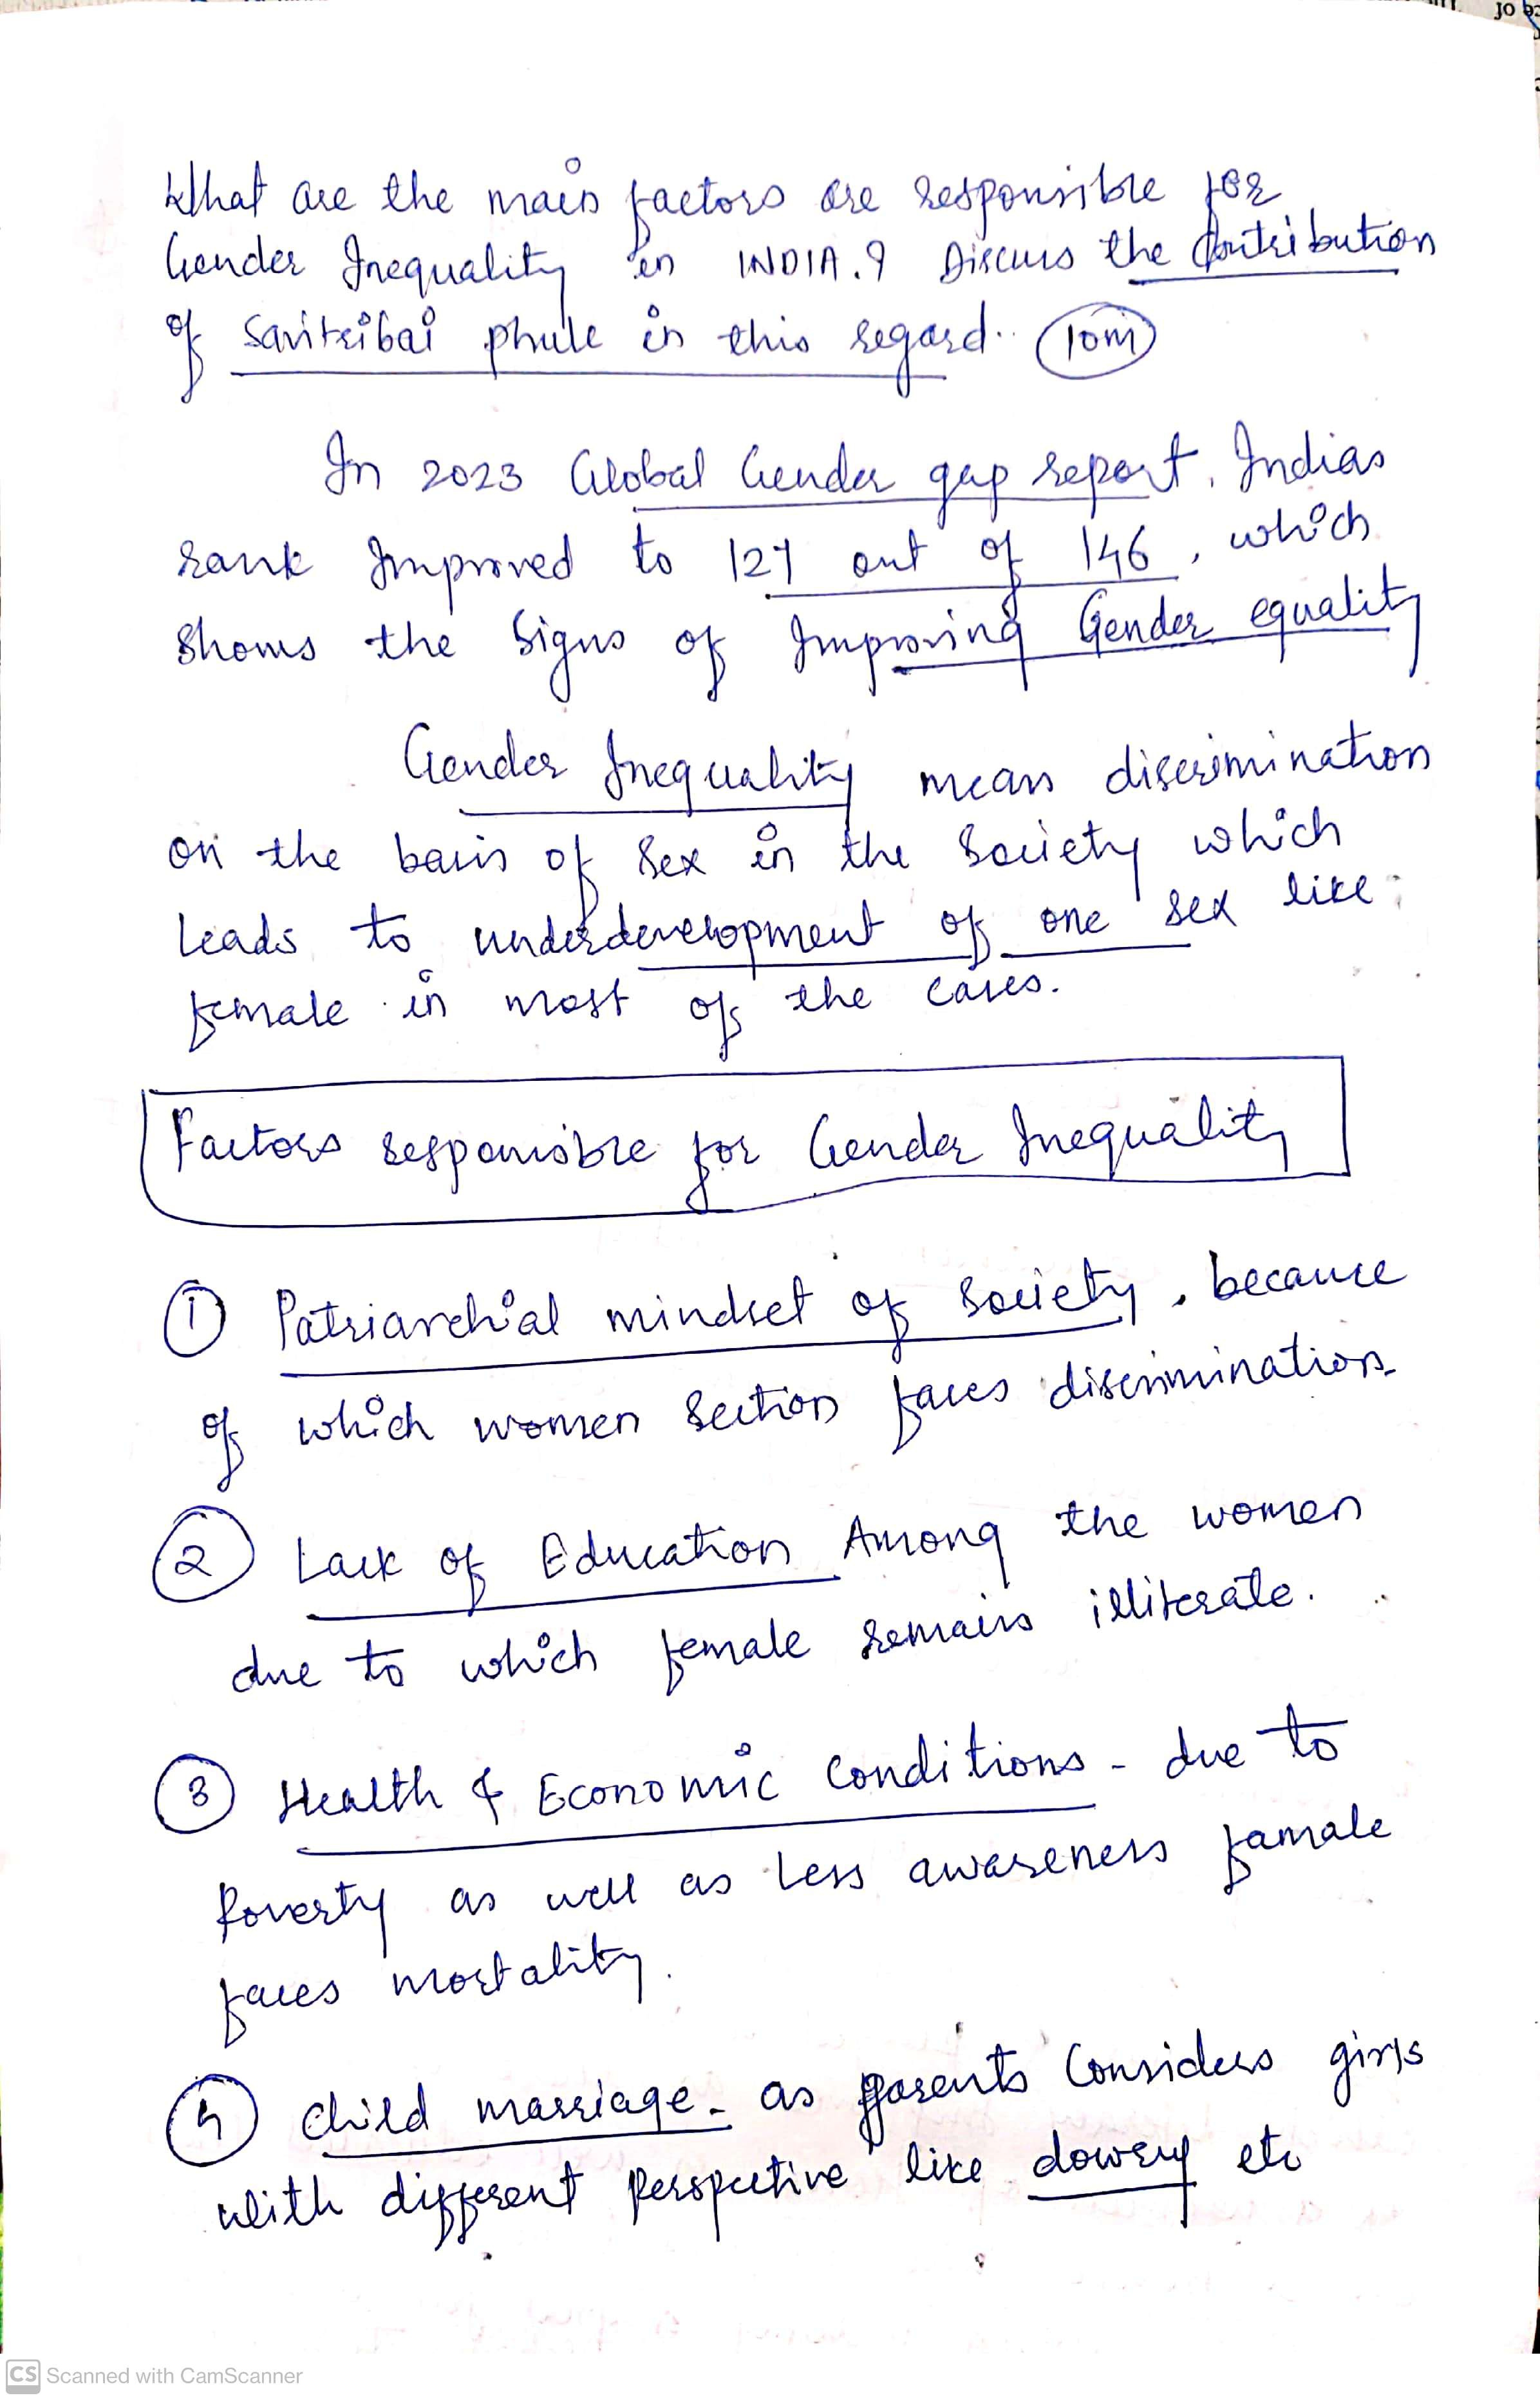 What are the main factors are responsible for
Gender Inequality in INDIA.? Discuss the Contribution
of Savitribai phule in this regard.. 10m
In 2023 Global Gender gap report, Indias
rank Improved to 127 out of 146, which
shows the signs of Improving Gender equality
Gender Inequality means discrimination
on the basis of sex in the society which
leads to underdevelopment of one sex like
female in most of the cases.
Factors responsible for Gender Inequality
1 Patriarchial mindset of society, because
of which women section faces discrimination
2 Lack of Education Among the women
due to which female remains illiterate.
3 Health & Economic Conditions - due to
Poverty as well as less awareness famale
faces mortality.
4 Child marriage - as parents Considers girls
with different perspective like dowery etc
CS Scanned with CamScanner